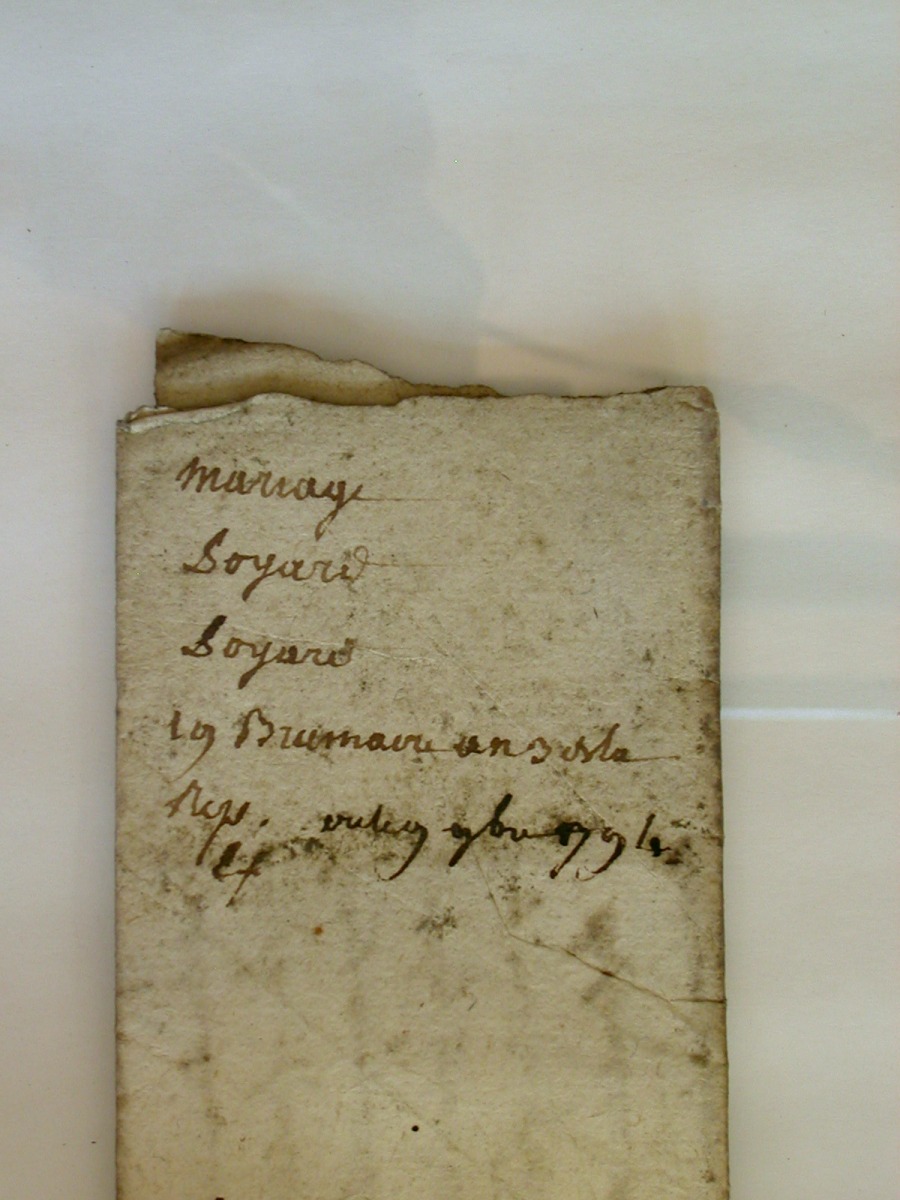 Mariage
Soyard
Soyard
19 Brumaire an 3 de la
Rep. ou le 9 9bre 1794